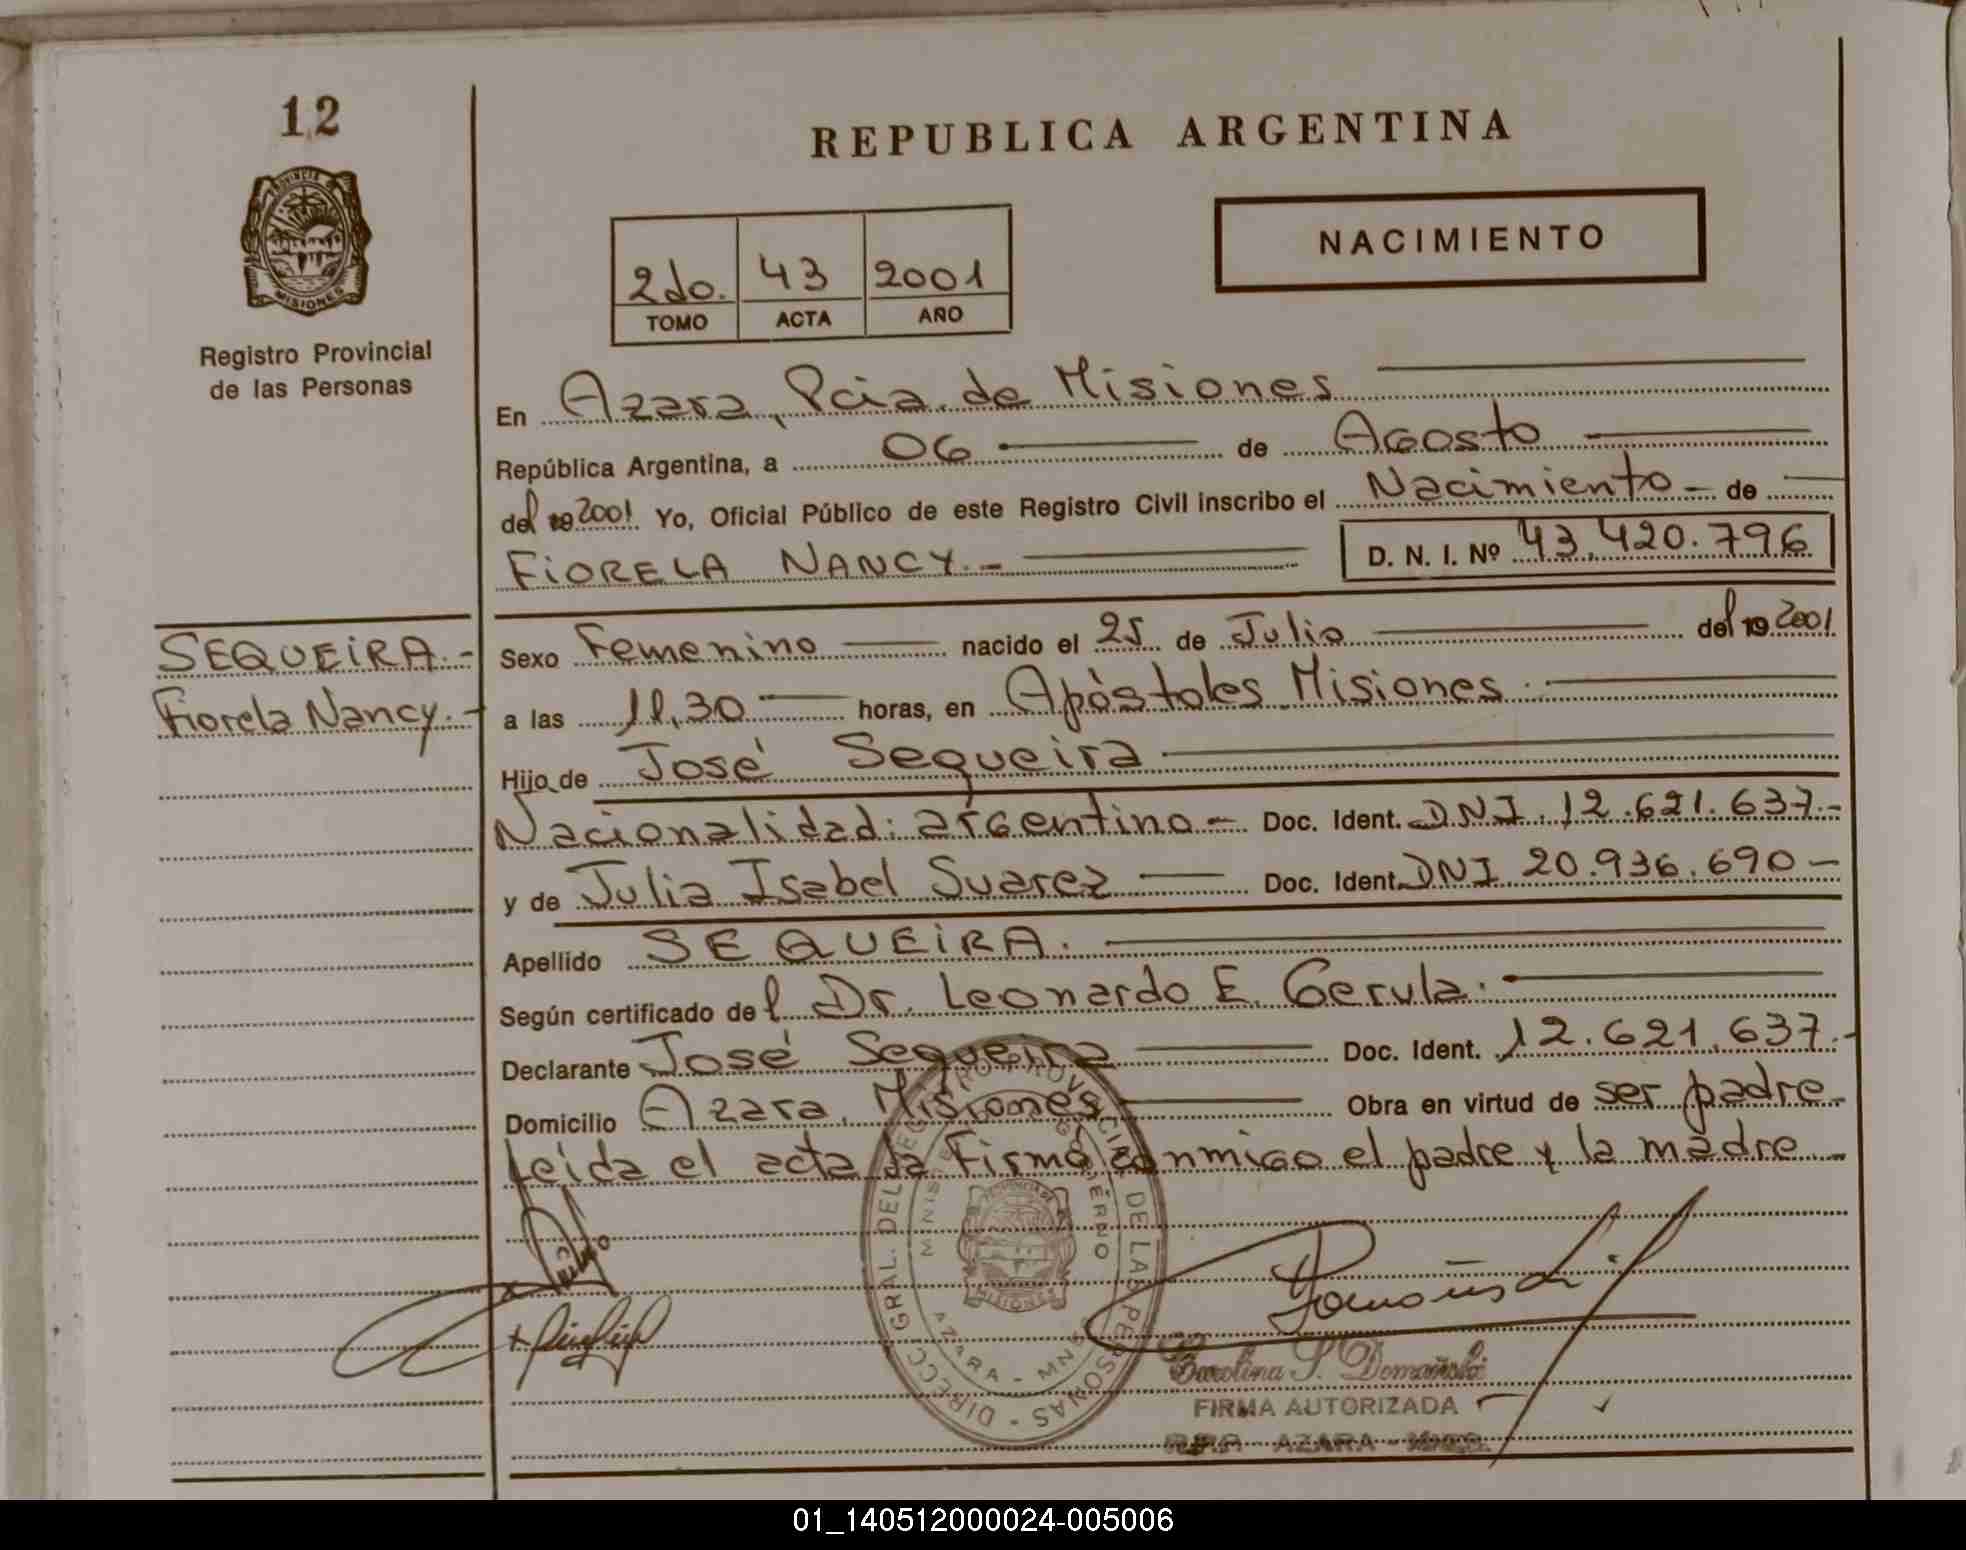 12
PROVINCIA DE
MISIONES
Registro Provincial
de las Personas
REPUBLICA ARGENTINA
NACIMIENTO
2do. 43 2001
TOMO ACTA AÑO
En Azara, Pcia. de Misiones
República Argentina, a 06 de Agosto
del 19 2001 Yo, Oficial Público de este Registro Civil inscribo el Nacimiento - de
FiORELA NANCY.- D. N. I. Nº 43.420.796
SEQUEiRA.-
Fiorela Nancy.-
Sexo Femenino nacido el 25 de Julio del 19 2001
a las 11,30 horas, en Apóstoles Misiones.
Hijo de José Sequeira
Nacionalidad: argentino- Doc. Ident. DNI. 12.621.637.-
y de Julia Isabel Suarez Doc. Ident. DNI 20.936.690-
Apellido SEQUEiRA.
Según certificado del Dr. Leonardo E. Gerula.
Declarante José Sequeira Doc. Ident. 12.621.637.-
Domicilio Azara, Misiones Obra en virtud de ser padre-
Leida el acta la Firmó conmigo el padre y la madre-
DIRECC. GRAL. DEL REGISTRO PROVINCIAL DE LAS PERSONAS -
MINISTERIO GOBIERNO
PROVINCIA DE
MISIONES
AZARA - MNES
Carolina S. Domañski
FIRMA AUTORIZADA
R.P.P. - AZARA - MNES.
01_140512000024-005006